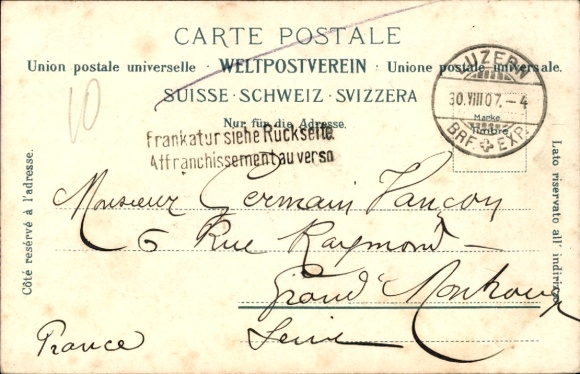 CARTE POSTALE
Union postale universelle · WELTPOSTVEREIN · Unione postale universale.
SUISSE · SCHWEIZ · SVIZZERA
Nur für die Adresse.
LUZERN
30.VIII 07. - 4
BRF. EXP.
Marke.
Timbre.
10
Frankatur siehe Rückseite.
Affranchissement au verso
Côté resérvé à l'adresse.
Lato riservato all' indirizzo.
Monsieur Germain Vançon
6 Rue Raymond
Grand Montrouge
Seine
France